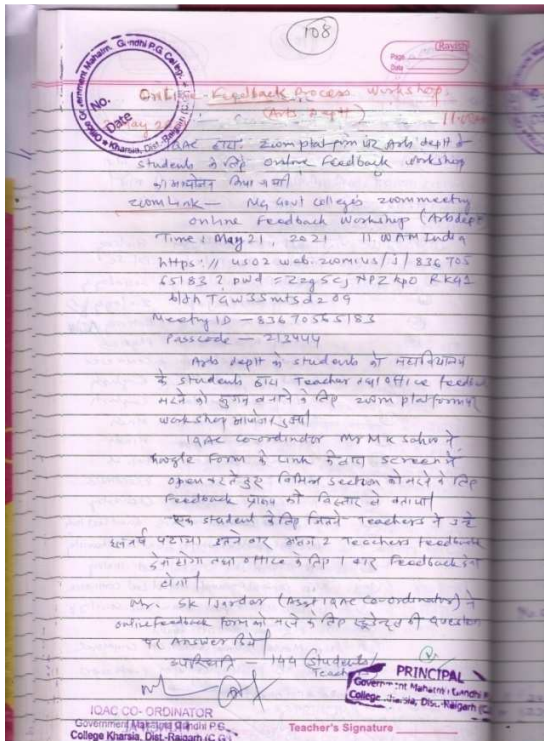 108
Ravish
Page
Date
Office Government Mahatma Gandhi P.G. College
Kharsia, Dist.-Raigarh
No.
Date
Online Feedback Process Workshop
May 2 (Arts Deptt) 11:00
IQAC द्वारा zoom platform पर Arts deptt के
students के लिए online Feedback workshop
का आयोजन किया गया।
zoom Link — MG Govt college's zoom meeting
online Feedback Workshop (Arts dep
Time: May 21, 2021 11.00 AM India
https:// us02 web. zoom.us/j/ 836 705
65183 ? pwd =
Meeting ID — 83670565183
Passcode — 213444
Arts deptt के students को महाविद्यालय
के students द्वारा Teacher तथा office feedback
भरने को सुगम बनाने के लिए zoom platform पर
workshop आयोजन हुआ।
IQAC co-ordinator Mr M K Sahu ने
Google Form के Link के द्वारा screen में
open करते हुए विभिन्न section को भरने के लिए
Feedback प्रारूप को विस्तार से बताया।
एक student के लिए जितने Teachers ने उन्हें
पढ़ाया उतने बार अलग 2 Teachers feedback
देना होगा तथा office के लिए 1 बार Feedback देना
होगा।
Mr. SK (Asst IQAC co-ordinator) ने
online feedback form को भरने के लिए स्टूडेन्ट्स की question
पर Answer दिये।
उपस्थिति — 144 (Students/
Teachers
PRINCIPAL
Government Mahatma Gandhi P
College Kharsia, Dist.-Raigarh (C.
IQAC CO-ORDINATOR
Government Mahatma Gandhi P.G.
College Kharsia, Dist.-Raigarh (C.G.)
Teacher's Signature